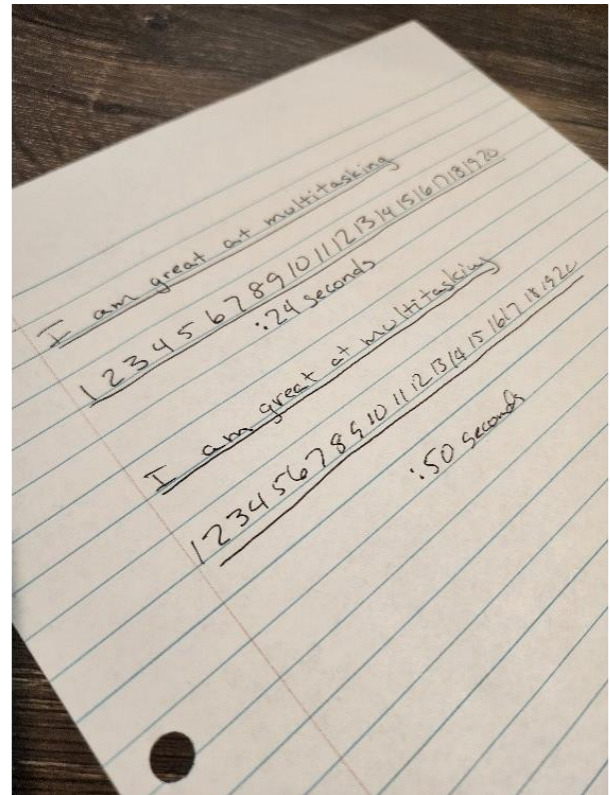 I am great at multitasking
1 2 3 4 5 6 7 8 9 10 11 12 13 14 15 16 17 18 19 20
:24 seconds
I am great at multitasking
1 2 3 4 5 6 7 8 9 10 11 12 13 14 15 16 17 18 19 20
:50 seconds